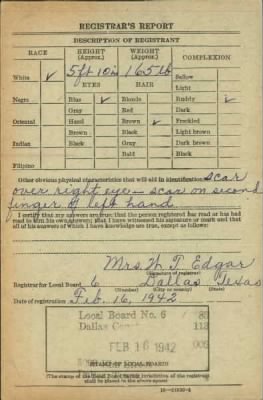 REGISTRAR'S REPORT
DESCRIPTION OF REGISTRANT
RACE HEIGHT (Approx.) WEIGHT (Approx.) COMPLEXION
White ✓ 5 ft 10 in 165 lb Sallow
EYES HAIR Light
Negro Blue ✓ Blonde Ruddy ✓
Gray Red Dark
Oriental Hazel Brown ✓ Freckled
Brown Black Light brown
Indian Black Gray Dark brown
Bald Black
Filipino
Other obvious physical characteristics that will aid in identification scar
over right eye - scar on second
finger of left hand
I certify that my answers are true; that the person registered has read or has had
read to him his own answers; that I have witnessed his signature or mark and that
all of his answers of which I have knowledge are true, except as follows:
Mrs. W. T. Edgar
(Signature of registrar)
Registrar for Local Board 6 Dallas Texas
(Number) (City or county) (State)
Date of registration Feb. 16, 1942
Local Board No. 6
Dallas
113
FEB 16 1942
STAMP OF LOCAL BOARD
(The stamp of the Local Board having jurisdiction of the registrant
shall be placed in the above space)